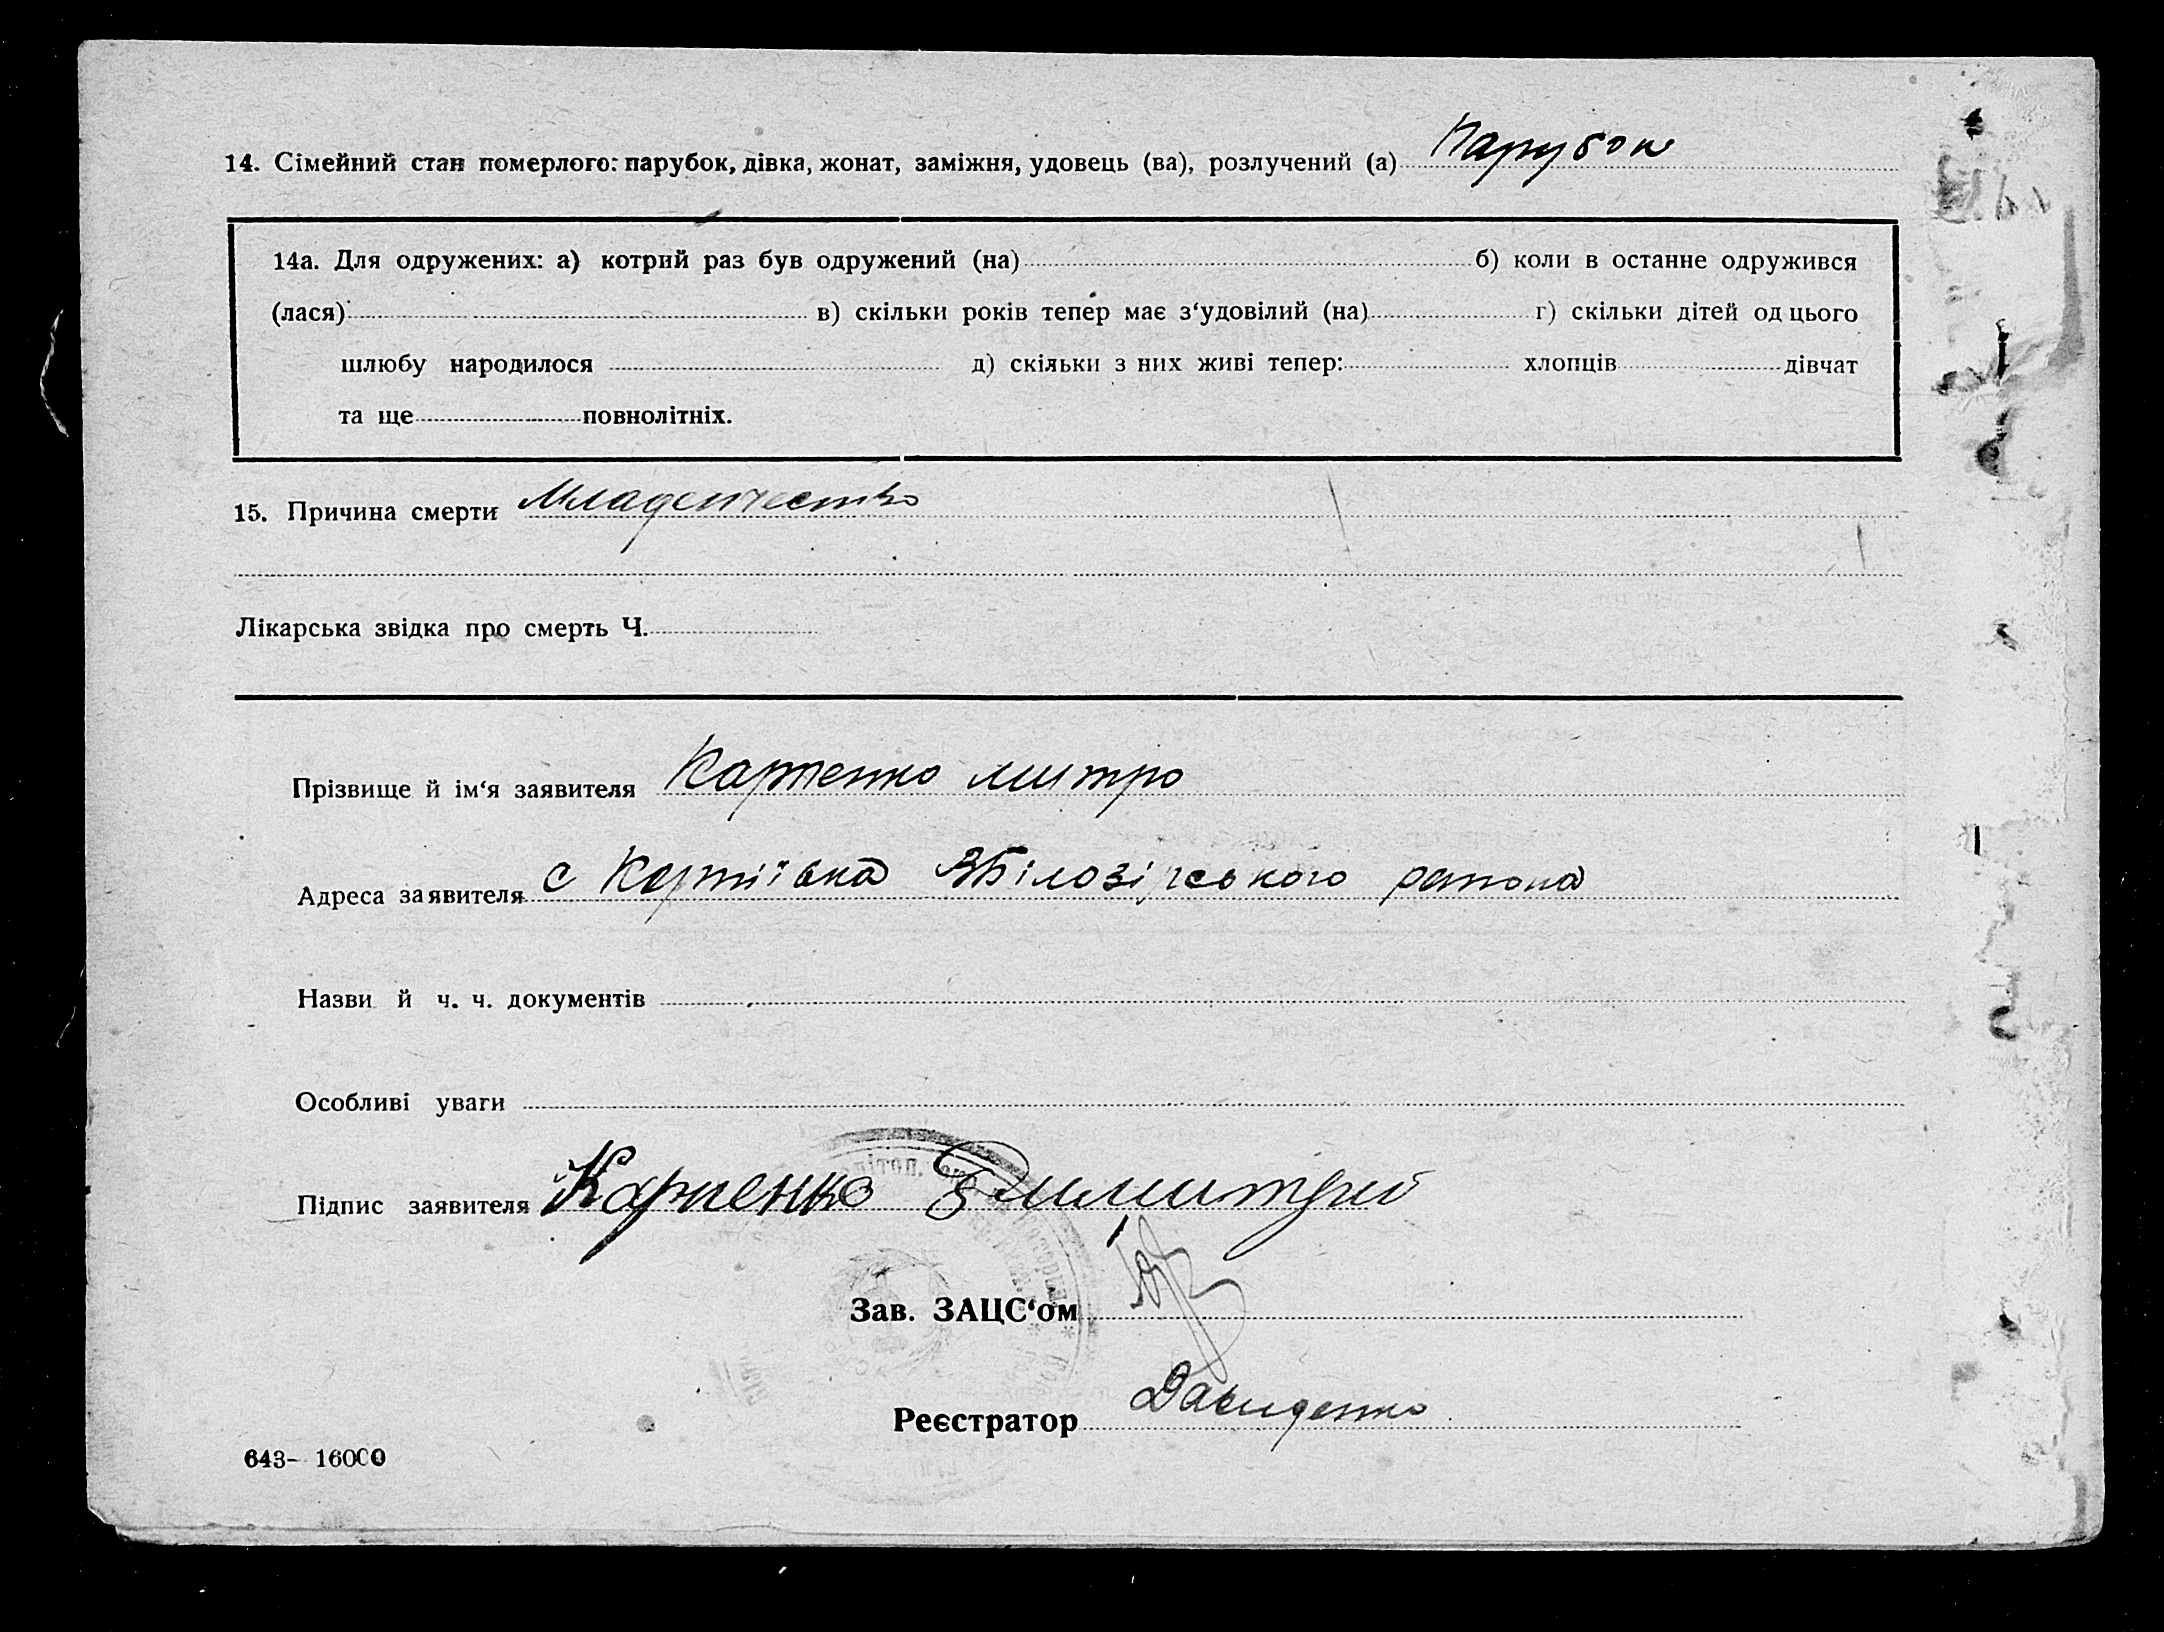 14. Сімейний стан померлого: парубок, дівка, жонат, заміжня, удовець (ва), розлучений (а) Парубок
14а. Для одружених: а) котрий раз був одружений (на) б) коли в останне одружився
(лася) в) скільки років тепер має з‘удовілий (на) г) скільки дітей од цього
шлюбу народилося д) скільки з них живі тепер: хлопців дівчат
та ще повнолітніх.
15. Причина смерти Младенчество
Лікарська звідка про смерть Ч.
Прізвище й ім‘я заявителя Карпенко митро
Адреса заявителя с Білозірського района
Назви й ч. ч. документів
Особливі уваги
Підпис заявителя Карпенко Димитрий
Зав. ЗАЦС‘ом
Реєстратор Давиденко
643- 16000